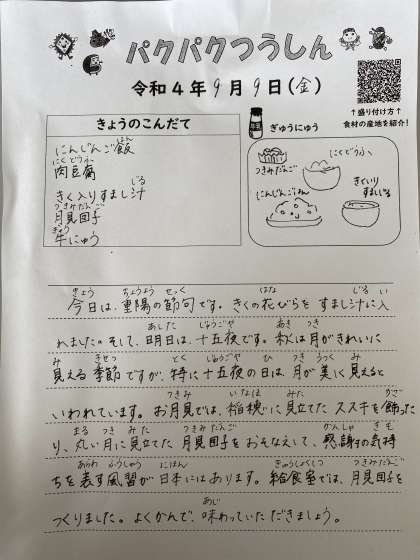 パクパクつうしん
令和4年9月9日(金)
↑盛り付け方↑
食材の産地を紹介！
きょうのこんだて
にんじんご飯
肉豆腐
きく入りすまし汁
月見団子
牛にゅう
ぎゅうにゅう
にくどうふ
つきみだんご
にんじんごはん
きくいり
すましじる
今日は、重陽の節句です。きくの花びらをすまし汁に入
れました。そして、明日は、十五夜です。秋は月がきれいに
見える季節ですが、特に十五夜の日は、月が美しく見えると
いわれています。お月見では、稲穂に見立てたススキを飾った
り、丸い月に見立てた月見団子をおそなえして、感謝の気持
ちを表す風習が日本にはあります。給食室では、月見団子を
つくりました。よくかんで、味わっていただきましょう。